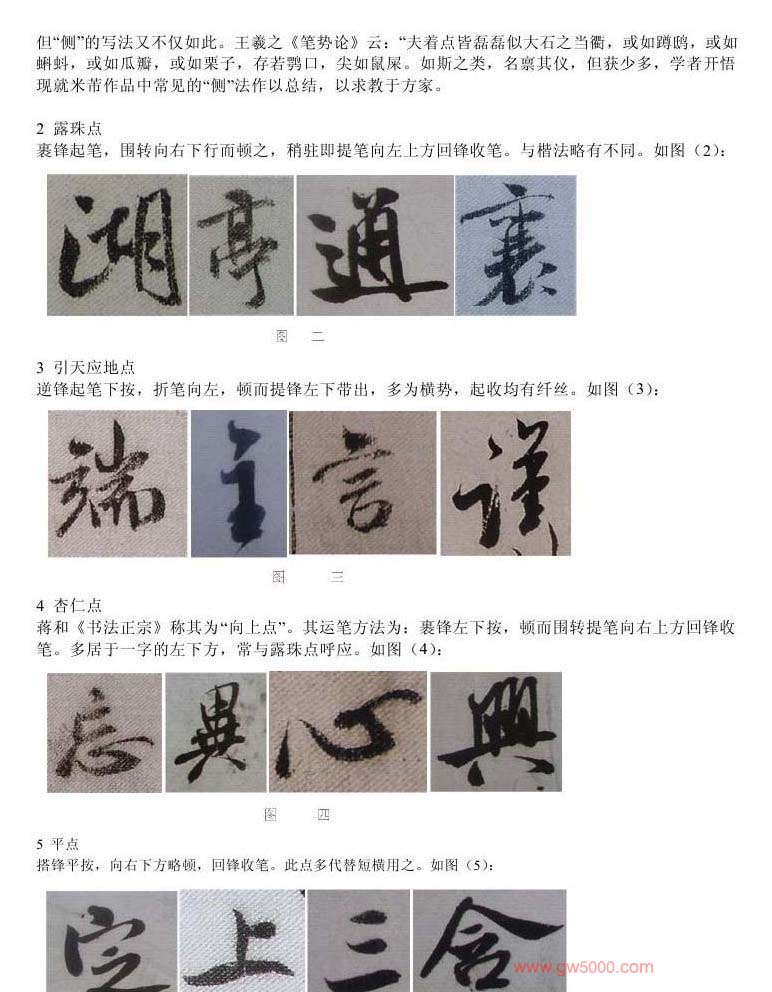 但“侧”的写法又不仅如此。王羲之《笔势论》云：“夫着点皆磊磊似大石之当衢，或如蹲鸱，或如
蝌蚪，或如瓜瓣，或如栗子，存若鹗口，尖如鼠屎。如斯之类，名禀其仪，但获少多，学者开悟
现就米芾作品中常见的“侧”法作以总结，以求教于方家。
2 露珠点
裹锋起笔，围转向右下行而顿之，稍驻即提笔向左上方回锋收笔。与楷法略有不同。如图（2）：
湖 亭 通 襄
图 二
3 引天应地点
逆锋起笔下按，折笔向左，顿而提锋左下带出，多为横势，起收均有纤丝。如图（3）：
端 主 言 谨
图 三
4 杏仁点
蒋和《书法正宗》称其为“向上点”。其运笔方法为：裹锋左下按，顿而围转提笔向右上方回锋收
笔。多居于一字的左下方，常与露珠点呼应。如图（4）：
忘 異 心 興
图 四
5 平点
搭锋平按，向右下方略顿，回锋收笔。此点多代替短横用之。如图（5）：
定 上 三 含
www.gw5000.com